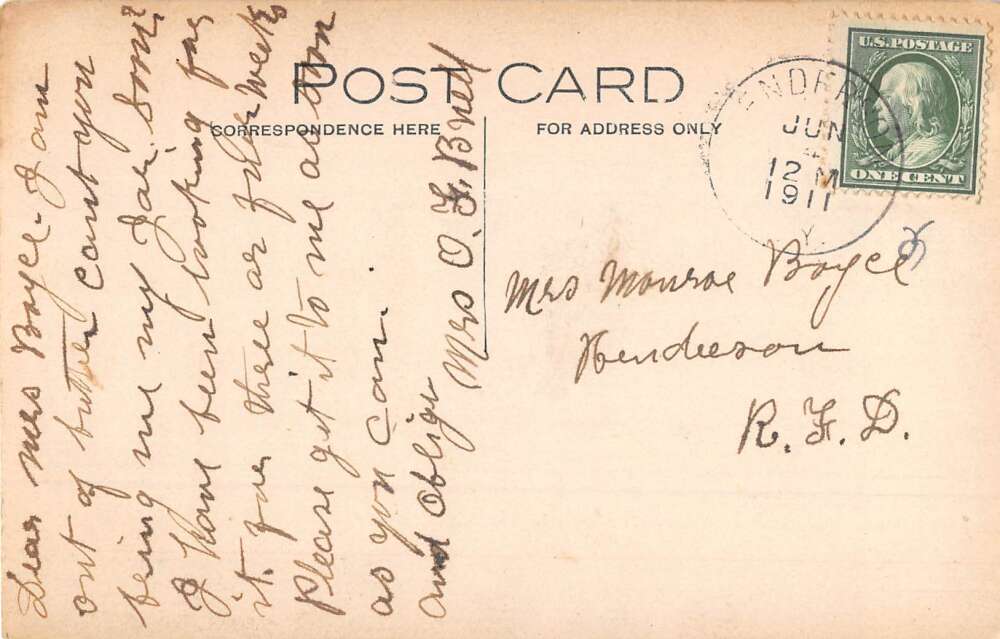 POST CARD
CORRESPONDENCE HERE
FOR ADDRESS ONLY
U.S. POSTAGE
ONE CENT
JUN
12 M
1911
Y.
Mrs Monroe Boyce
Henderson
R.F.D.
Dear Mrs Boyce - I am
out of butter cant you
bring me my Jar soon?
I have been looking for
it for these or few weeks
Please get it to me as soon
as you can
and oblige
Mrs O. F.